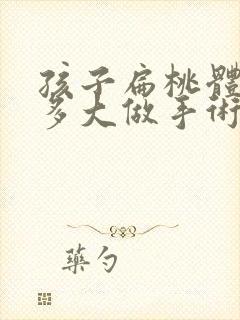 孩子扁桃體
多大做手術
藥勺